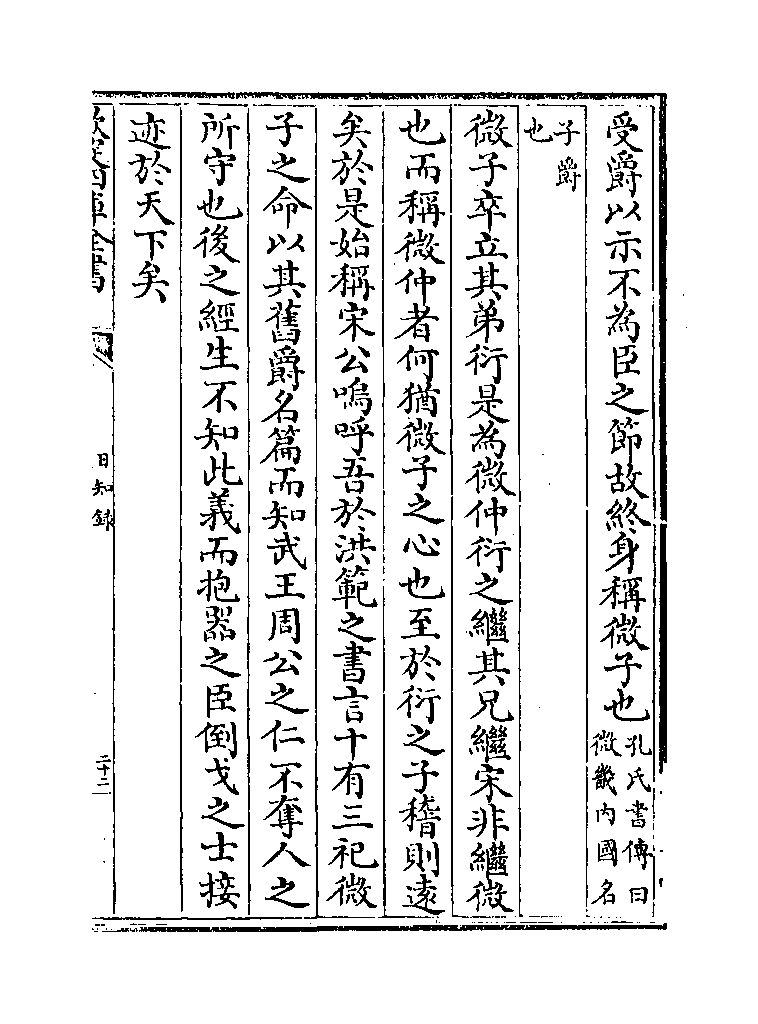 受爵以示不為臣之節故終身稱微子也孔氏書傳曰微畿內國名
子爵也
微子卒立其弟衍是為微仲衍之繼其兄繼宋非繼微
也而稱微仲者何猶微子之心也至於衍之子稽則遠
矣於是始稱宋公嗚呼吾於洪範之書言十有三祀微
子之命以其舊爵名篇而知武王周公之仁不奪人之
所守也後之經生不知此義而抱器之臣倒戈之士接
迹於天下矣
欽定四庫全書
日知錄
二十二